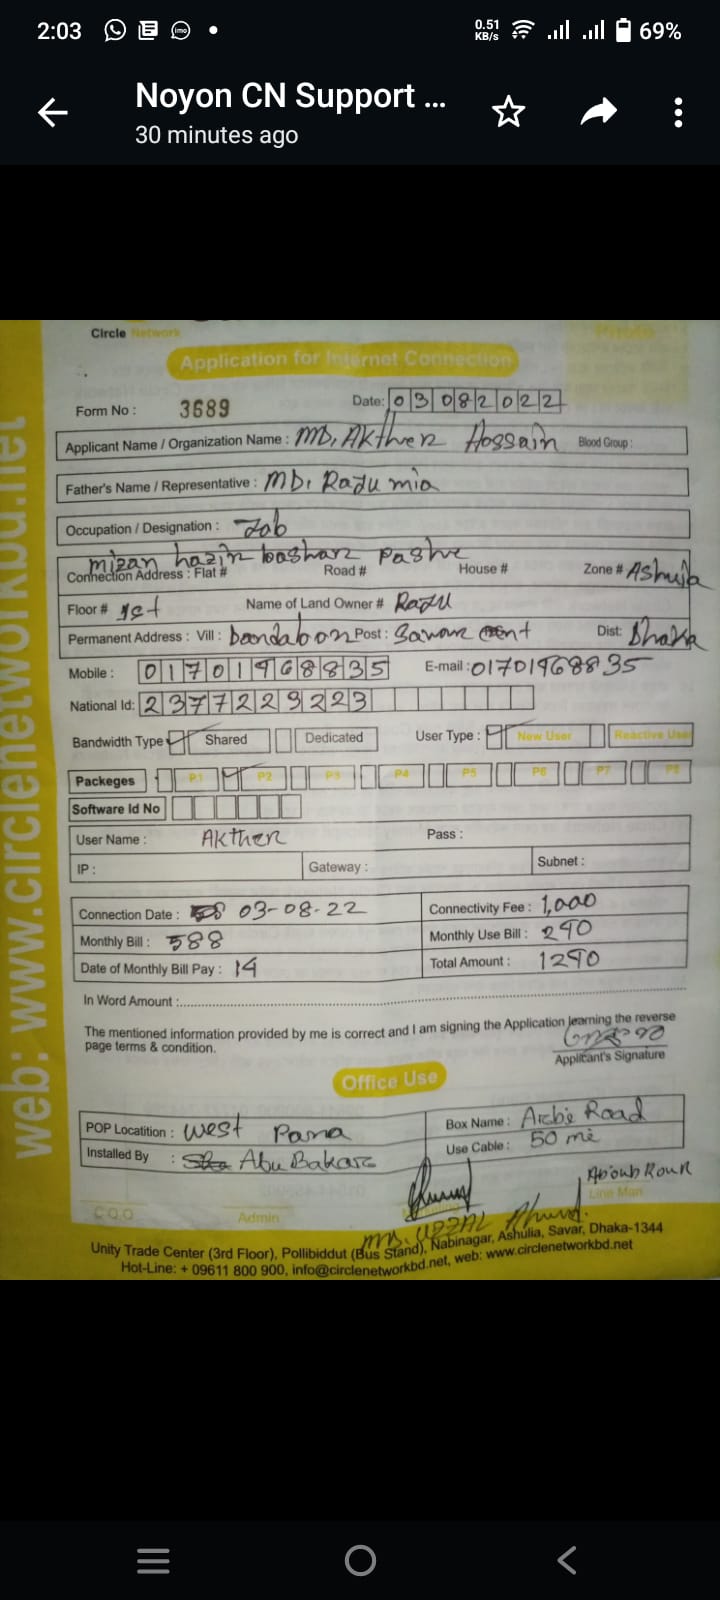 2:03 0.51 KB/s 69%
Noyon CN Support ...
30 minutes ago
Circle Network
Application for Internet Connection
Form No : 3689 Date: 03082022
Applicant Name / Organization Name : MD, AKther Hossain Blood Group :
Father's Name / Representative : MD. Razu mia
Occupation / Designation : Job
mizan hazir bashar pashe
Connection Address : Flat # Road # House # Zone # Ashulia
Floor # 1st Name of Land Owner # Razu
Permanent Address : Vill : Post : Dist: Dhaka
Mobile : 01701968835 E-mail : 01701968835
National Id: 2377229223
Bandwidth Type Shared Dedicated User Type : New User Reactive User
Packeges P.1 P2 P3 P4 P5 P6 P7 P8
Software Id No
User Name : AKther Pass :
IP : Gateway : Subnet :
Connection Date : 03-08-22 Connectivity Fee : 1,000
Monthly Bill : 588 Monthly Use Bill : 290
Date of Monthly Bill Pay : 14 Total Amount : 1290
In Word Amount :
The mentioned information provided by me is correct and I am signing the Application learning the reverse
page terms & condition.
Applicant's Signature
Office Use
POP Locatition : West Para Box Name : Road
Installed By : Abu Bakar Use Cable : 50 mi
C.O.O Admin Marketing Line Man
MD. UZZAL
Unity Trade Center (3rd Floor), Pollibiddut (Bus Stand), Nabinagar, Ashulia, Savar, Dhaka-1344
Hot-Line: + 09611 800 900, info@circlenetworkbd.net, web: www.circlenetworkbd.net
web: www.circlenetworkbd.net